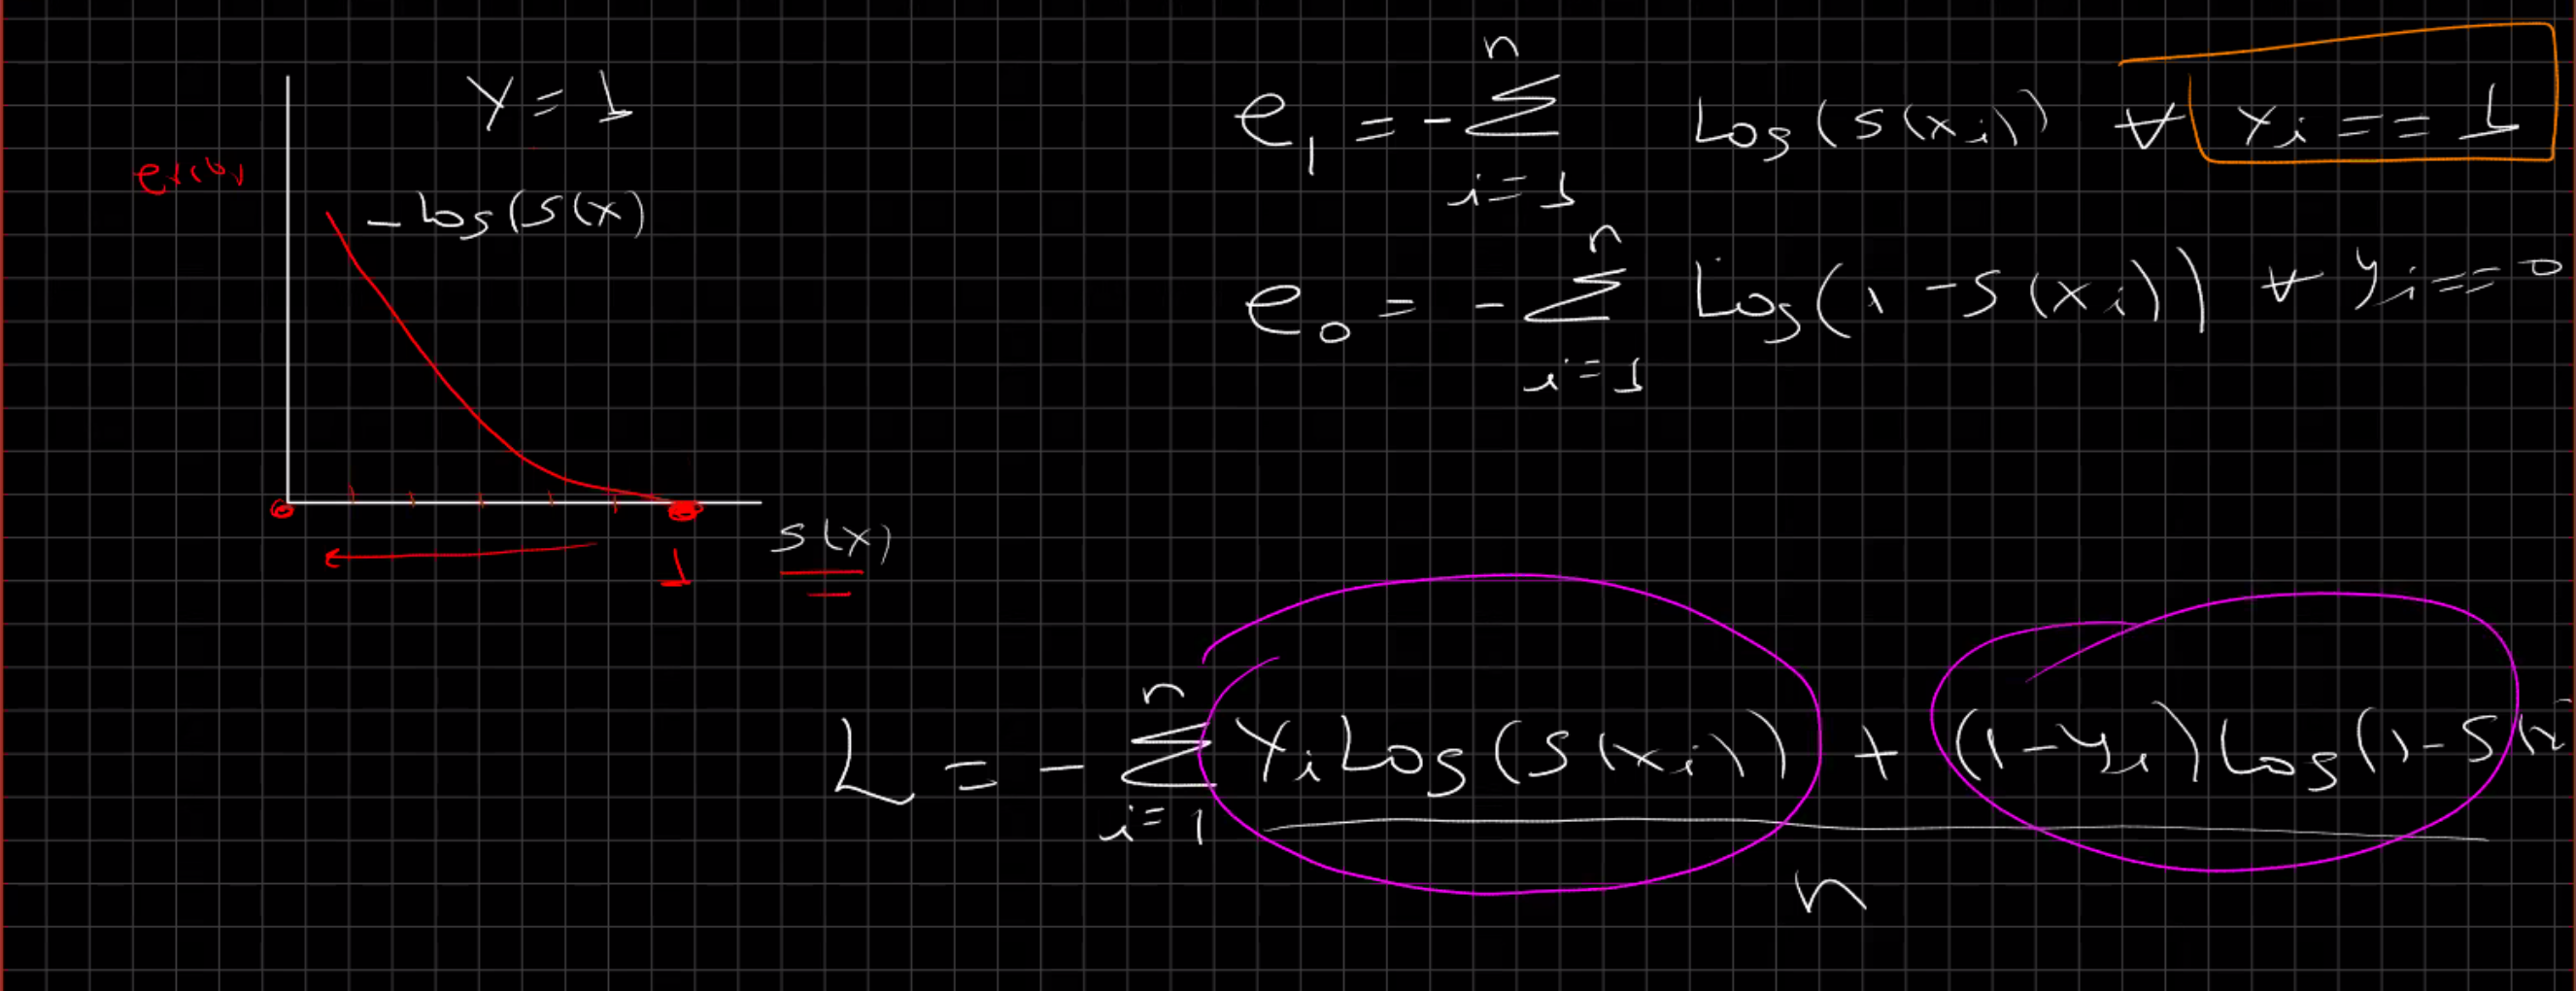 Y = 1
error
-log(S(x)
0
1
S(x)
e₁ = -∑ⁿᵢ₌₁ Log(S(xᵢ)) ∀ Yᵢ == 1
e₀ = -∑ⁿᵢ₌₁ Log(1 - S(xᵢ)) ∀ yᵢ == 0
L = -∑ⁿᵢ₌₁ Yᵢ Log(S(xᵢ)) + (1 - yᵢ) Log(1 - S(x
n